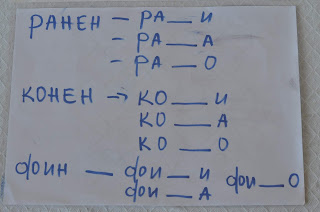 РАНЕН – РА__И
– РА__А
– РА__О
КОНЕН → КО__И
КО__А
КО__О
ФОИН — ФОИ__И ФОИ__О
ФОИ__А